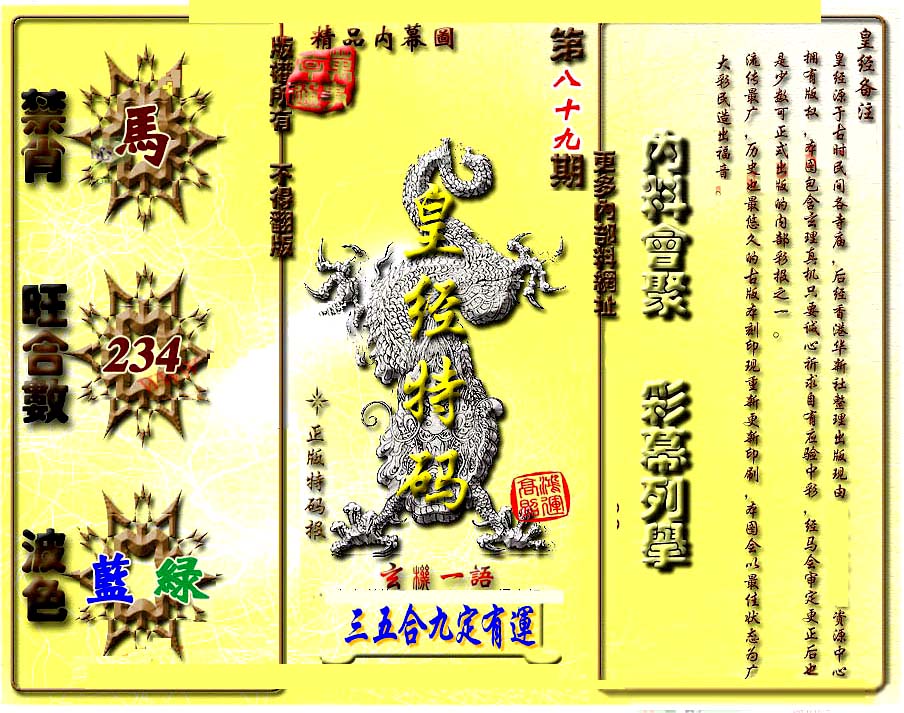 精品内幕圖
第八十九期
版權所有 不得翻版
更多內部料網址
禁肖
馬
旺合數
234
波色
藍 緑
皇经特码
正版特码报
鴻運高照
玄機一語
三五合九定有運
內料會聚 彩幕列舉
皇经备注
皇经源于古时民间各寺庙，后经香港华新社整理出版现由 资源中心
拥有版权，本图包含玄理真机只要诚心祈求自有应验中彩，经马会审定更正后也
是少数可正式出版的内部彩报之一。
流传最广，历史也最悠久的古版本刻印现重新更新印刷，本图会以最佳状态为广
大彩民造出福音